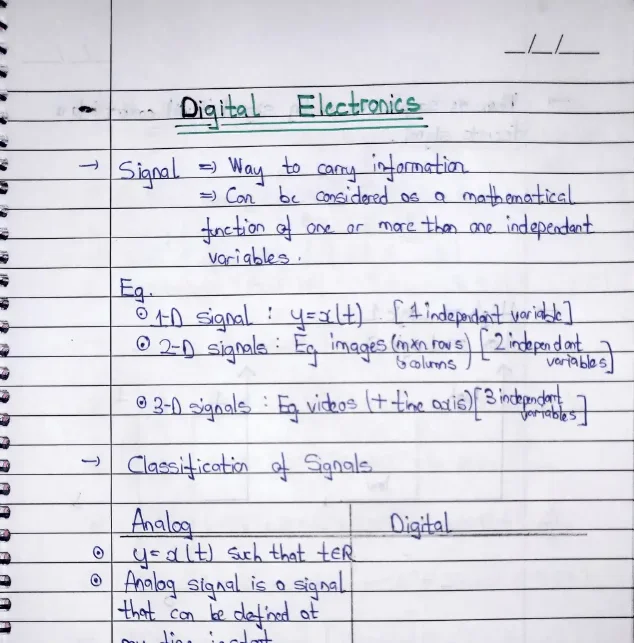 _/_/_
Digital Electronics
→ Signal ⇒ Way to carry information
⇒ Can be considered as a mathematical
function of one or more than one independant
variables.
Eg.
⊙ 1-D signal : y=x(t) [1 independant variable]
⊙ 2-D signals : Eg images (mxn rows & columns) [2 independant variables]
⊙ 3-D signals : Eg videos (+ time axis) [3 independant variables]
→ Classification of Signals
Analog Digital
⊙ y=x(t) such that t∈R
⊙ Analog signal is a signal
that can be defined at
any time instant